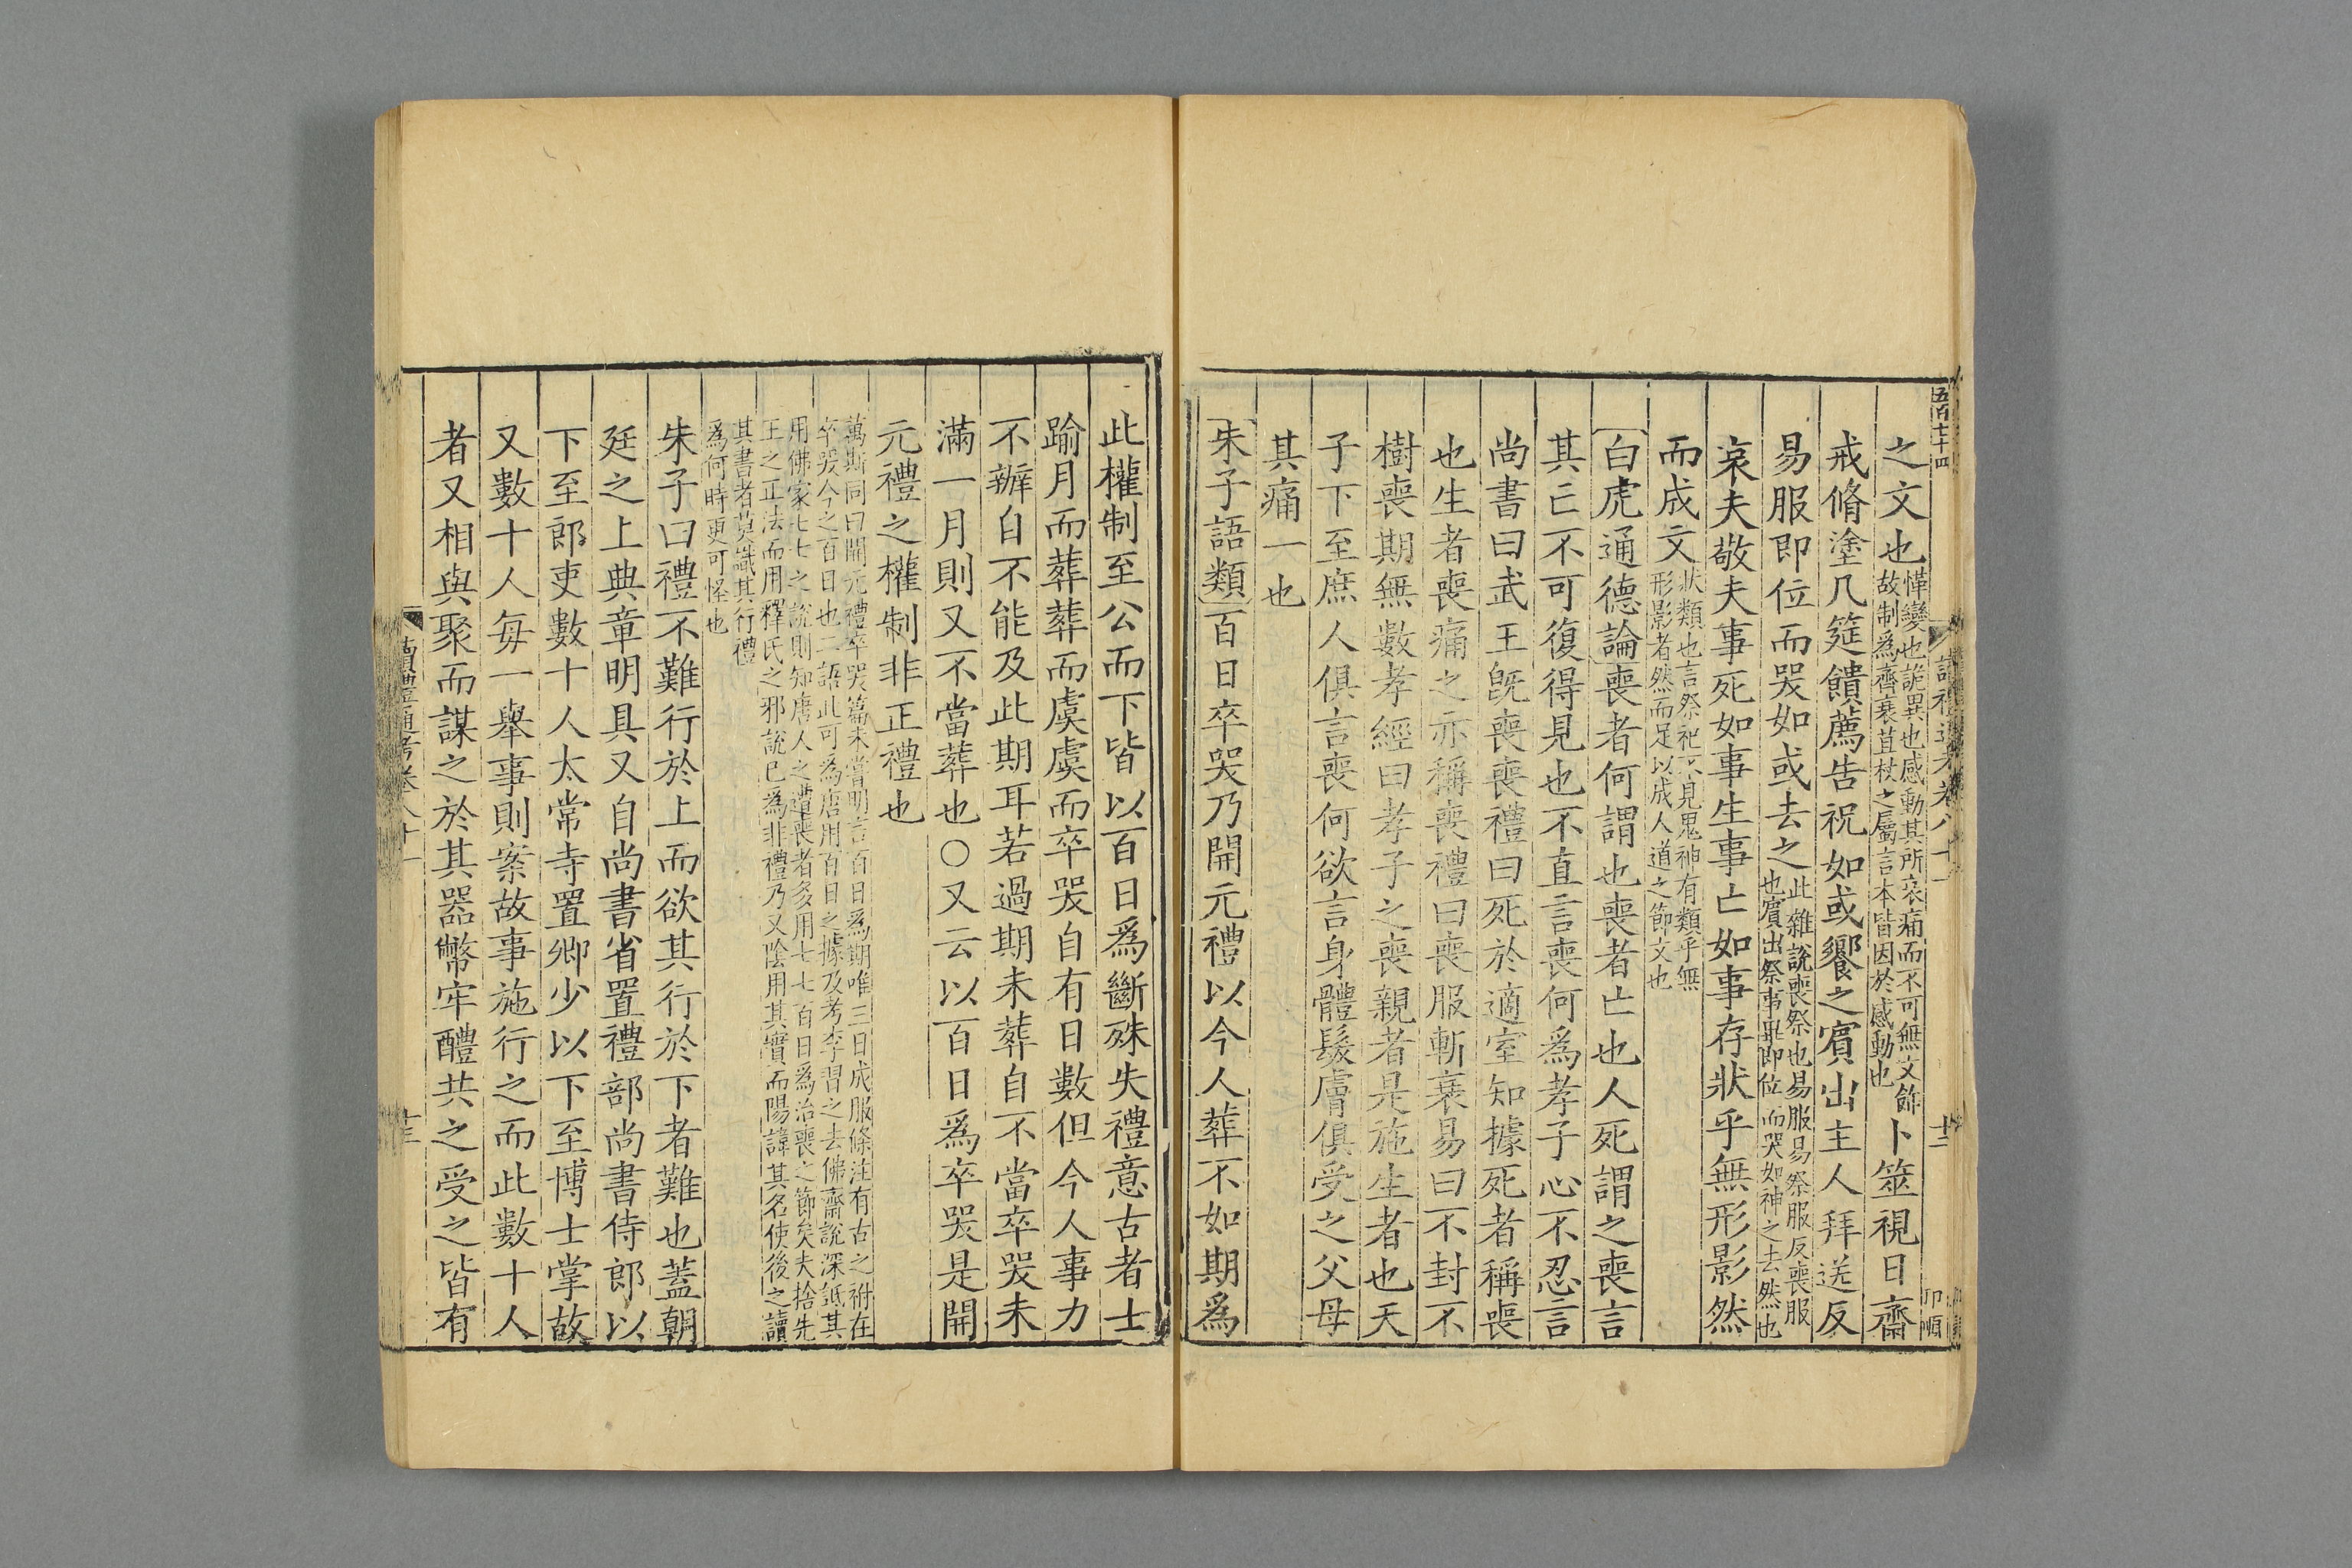 五百七十四
讀禮通考卷八十一
十二
之文也愅變也詭異也感動其所哀痛而不可無文飾故制爲齊衰苴杖之屬言本皆因於感動也卜筮視日齋
戒脩塗几筵饋薦告祝如或饗之賓出主人拜送反
易服即位而哭如或去之此雜說喪祭也易服易祭服反喪服也賓出祭事畢即位而哭如神之去然也
哀夫敬夫事死如事生事亡如事存狀乎無形影然
而成文狀類也言祭祀不見鬼神有類乎無形影者然而足以成人道之節文也
白虎通德論喪者何謂也喪者亡也人死謂之喪言
其亡不可復得見也不直言喪何爲孝子心不忍言
尚書曰武王旣喪喪禮曰死於適室知據死者稱喪
也生者喪痛之亦稱喪喪禮曰喪服斬衰易曰不封不
樹喪期無數孝經曰孝子之喪親者是施生者也天
子下至庶人俱言喪何欲言身體髮膚俱受之父母
其痛一也
朱子語類百日卒哭乃開元禮以今人葬不如期爲
此權制至公而下皆以百日爲斷殊失禮意古者士
踰月而葬葬而虞虞而卒哭自有日數但今人事力
不辦自不能及此期耳若過期未葬自不當卒哭未
滿一月則又不當葬也○又云以百日爲卒哭是開
元禮之權制非正禮也
萬斯同曰開元禮卒哭篇未嘗明言百日爲期唯三日成服條注有古之祔在
卒哭今之百日也二語此可為唐用百日之據及考李習之去佛齋說深詆其
用佛家七七之說則知唐人之遭喪者多用七七百日爲治喪之節矣夫捨先
王之正法而用釋氏之邪說已爲非禮乃又陰用其實而陽諱其名使後之讀
其書者莫識其行禮
為何時更可怪也
朱子曰禮不難行於上而欲其行於下者難也蓋朝
廷之上典章明具又自尚書省置禮部尚書侍郎以
下至郎吏數十人太常寺置卿少以下至博士掌故
又數十人每一舉事則案故事施行之而此數十人
者又相與聚而謀之於其器幣牢醴共之受之皆有
讀禮通考卷八十一
十三